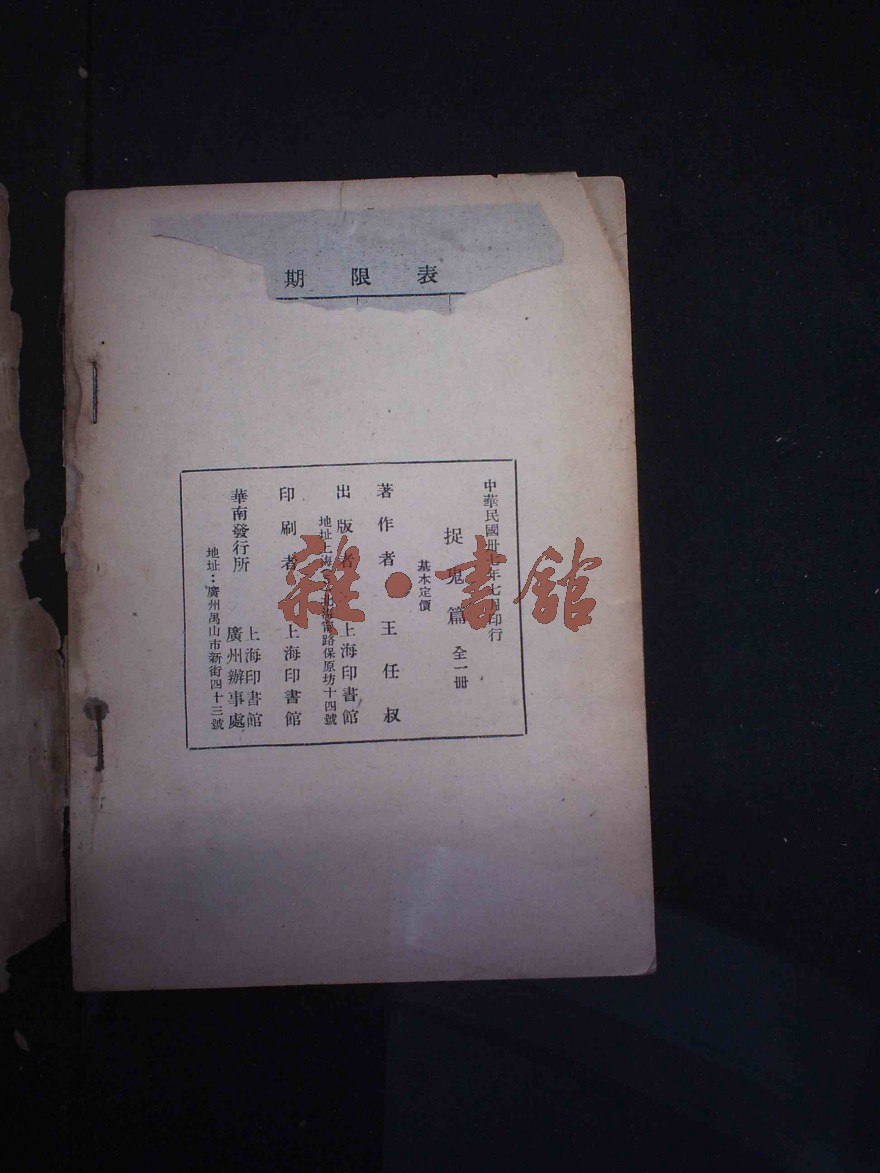 期限表
中華民國卅七年七月印行
捉鬼篇 全一冊
基本定價
著作者 王任叔
出版者 上海印書館
地址上海 北海 路保原坊十四號
印刷者 上海印書館
華南發行所 上海印書館
廣州辦事處
地址：廣州禺山市新街四十三號
雜·書館